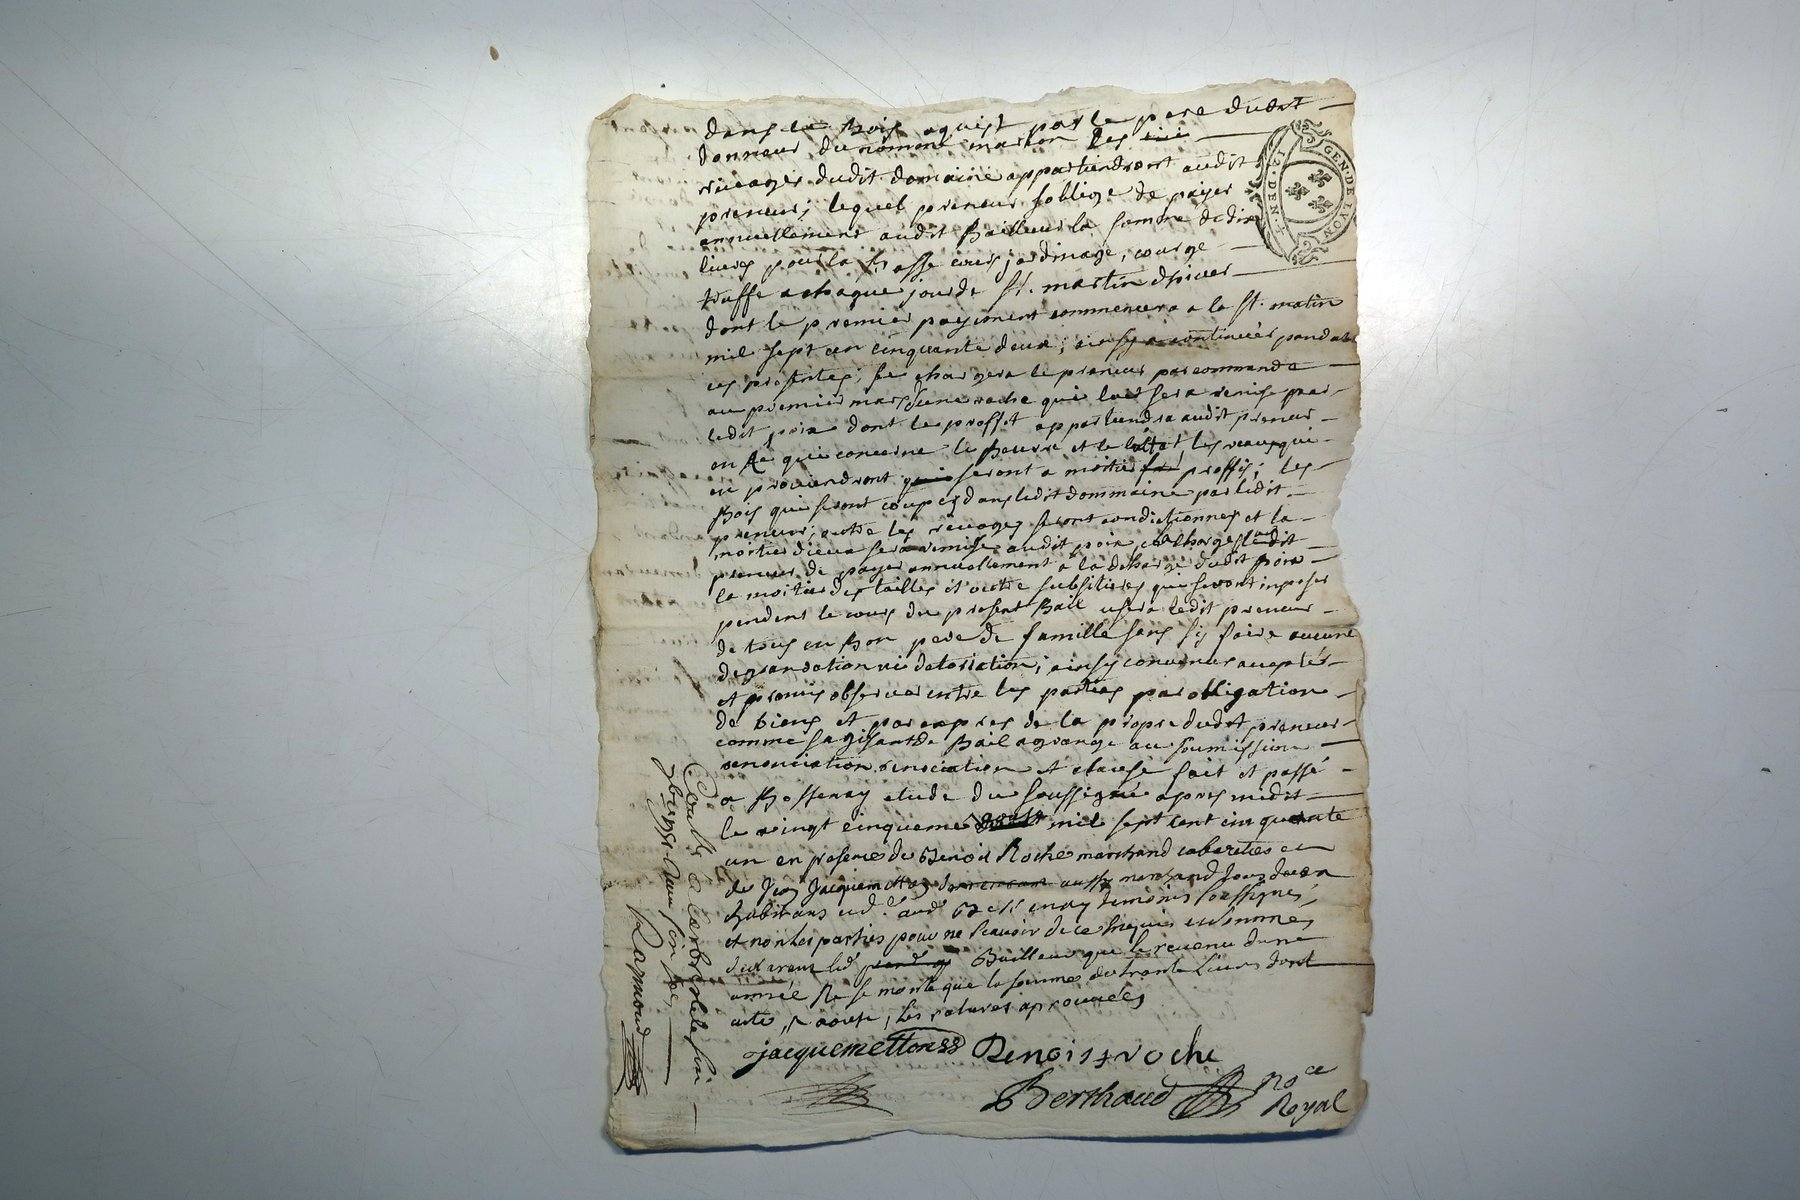 dans le Bois aquist par le pere dudit
donneur du nommé marton les
revages dudit domaine appartiendront audit
preneur; lequel preneur soblige de paÿer
annuellement audit Bailleur la somme de dix
livres pour la Basse cour, jardinage, courge
truffe a chaque jour de St. martin dhiver
dont le premier payement commencera a la St. matin
mil sept cen cinquante deux; ainsy a continuer pendant
ces presentes; se chargera le preneur par commande
au premier mars dune vache qui luit sera remise par
ledit poix dont le proffit appartiendra audit preneur
en se qui concerne le Beurre et le lettat les veaux qui
en proviendront seront a moitier proffis; les
Bois qui seront coupes dans ledit dommaine par ledit
preneur, outre les revages seront condictionnes et la
moitier diceux sera remise audit poix, a la charge audit
preneur de payer annuellement a la decharge dudit poix
la moitier des tailles et outre subsitieres qui seront imposer
pendent le cours du present Bail usera ledit preneur
de tous en Bon pere de famille sans sy faire aucune
degrandation ni detoriation; ainsy convenus acceptés
et promis observer entre les parties par obligation
de biens et par expres de la propre dudit preneur
comme sagisant de Bail a grange au soumission
renonciation renociation et clause fait et passé
a Bessenay etude du soussigné apres midit
le vingt cinquieme mil sept cent cinquante
un en presence de Benoit Roche marchand cabaretier et
de Jean Jacquemetton marchand
habitans aud. Bessenay temoins soussignés
et non les parties pour ne scavoir de ce enquis et sommes
declarent led. Bailleur que le revenu dune
année ne se monte que la somme de trante livres dont
acte, les ratures aprouvées
jacquemetton Benoist roche
Berthaud No.re
Royal
Controllé a Larbresle le six
Raymond
GEN. DE LYON
12. DEN.